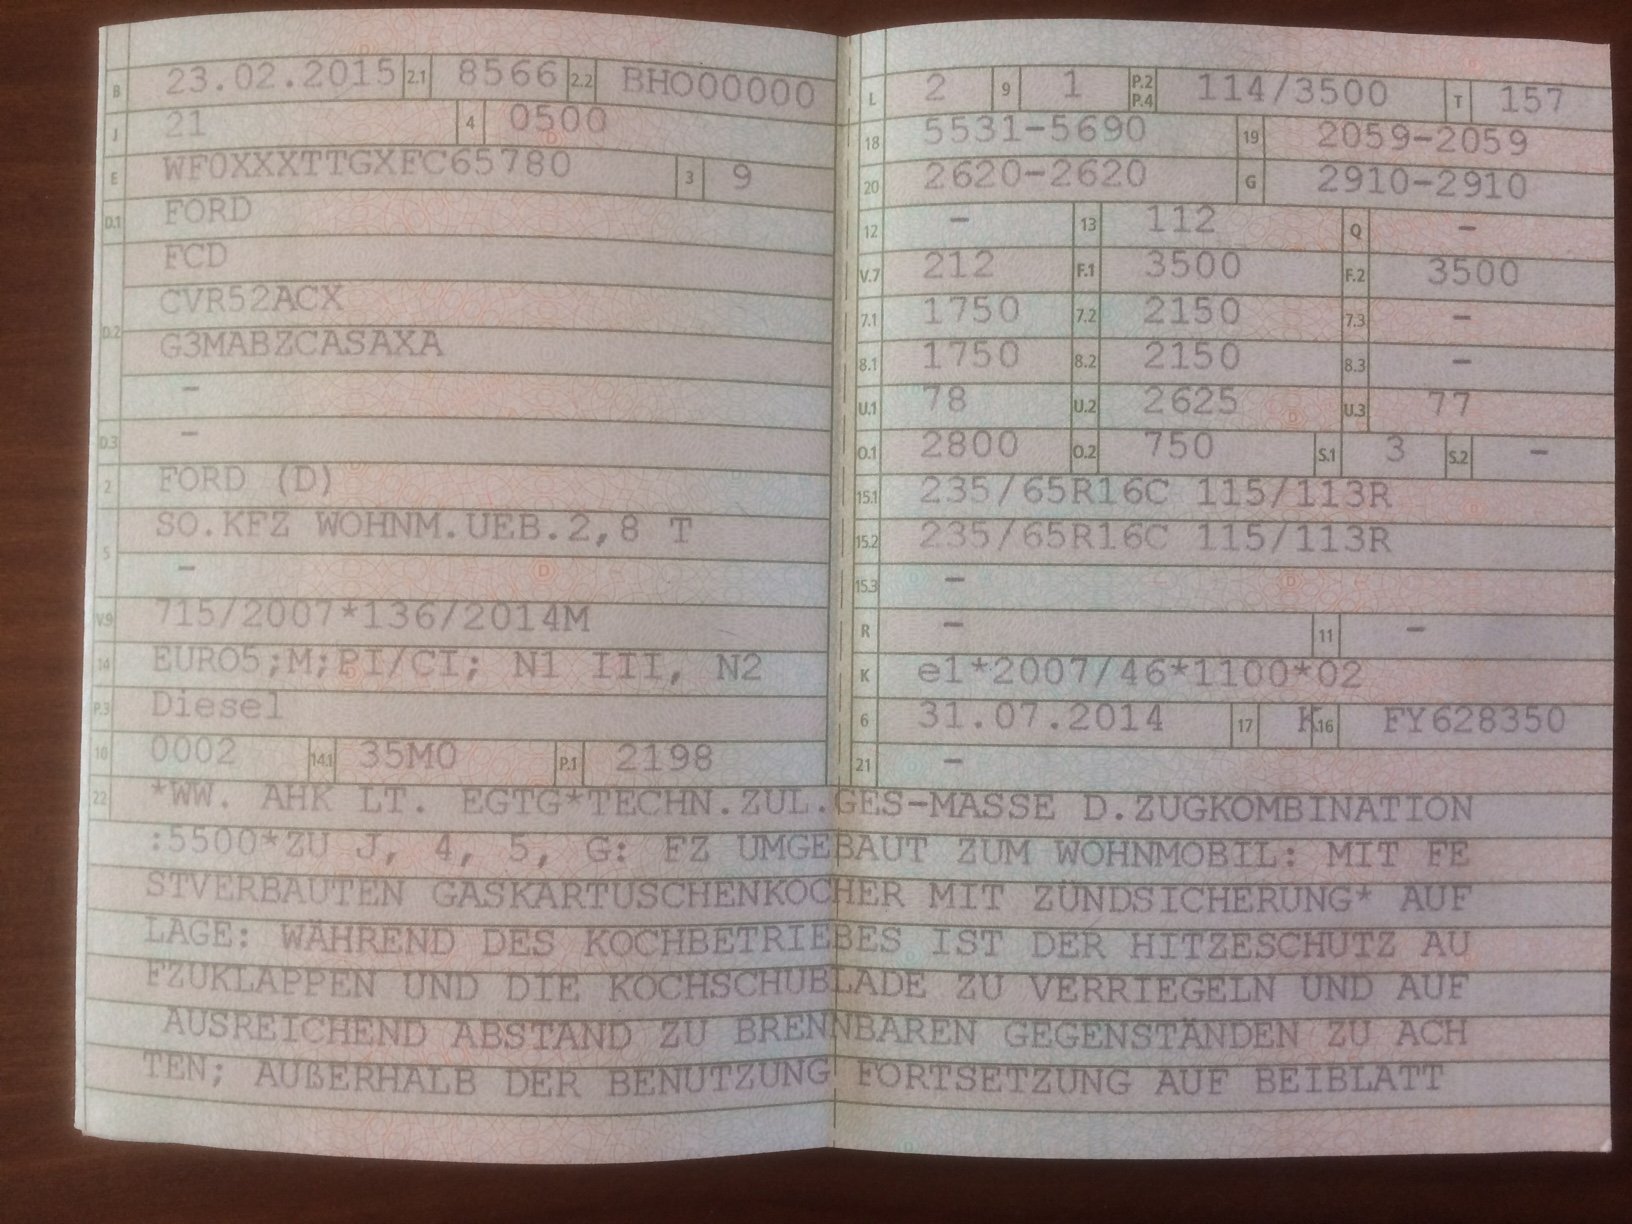 B 23.02.2015 2.1 8566 2.2 BHO00000
J 21 4 0500
E WF0XXXTTGXFC65780 3 9
D.1 FORD
FCD
D.2 CVR52ACX
G3MABZCASAXA
-
D.3 -
2 FORD (D)
5 SO.KFZ WOHNM.UEB.2,8 T
-
V.9 715/2007*136/2014M
14 EURO5;M;PI/CI; N1 III, N2
P.3 Diesel
10 0002 14.1 35M0 P.1 2198
L 2 9 1 P.2 P.4 114/3500 T 157
18 5531-5690 19 2059-2059
20 2620-2620 G 2910-2910
12 - 13 112 Q -
V.7 212 F.1 3500 F.2 3500
7.1 1750 7.2 2150 7.3 -
8.1 1750 8.2 2150 8.3 -
U.1 78 U.2 2625 U.3 77
O.1 2800 O.2 750 S.1 3 S.2 -
15.1 235/65R16C 115/113R
15.2 235/65R16C 115/113R
15.3 -
R - 11 -
K e1*2007/46*1100*02
6 31.07.2014 17 K 16 FY628350
21 -
22 *WW. AHK LT. EGTG*TECHN.ZUL.GES-MASSE D.ZUGKOMBINATION
:5500*ZU J, 4, 5, G: FZ UMGEBAUT ZUM WOHNMOBIL: MIT FE
STVERBAUTEN GASKARTUSCHENKOCHER MIT ZÜNDSICHERUNG* AUF
LAGE: WÄHREND DES KOCHBETRIEBES IST DER HITZESCHUTZ AU
FZUKLAPPEN UND DIE KOCHSCHUBLADE ZU VERRIEGELN UND AUF
AUSREICHEND ABSTAND ZU BRENNBAREN GEGENSTÄNDEN ZU ACH
TEN; AUßERHALB DER BENUTZUNG FORTSETZUNG AUF BEIBLATT